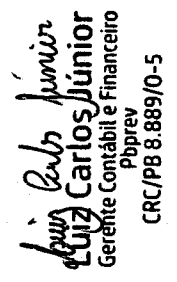 Luiz Carlos Júnior
Luiz Carlos Júnior
Gerente Contábil e Financeiro
Pbprev
CRC/PB 8.889/0-5